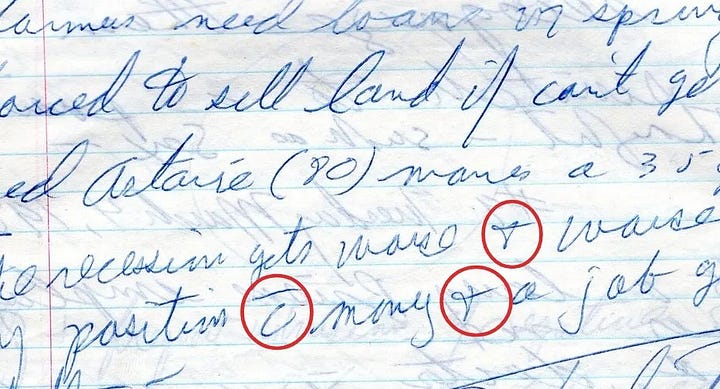 armers need loans in spring
orced to sell land if can't ge
ed Astaire (80) marries a 35 y
e recession gets worse + worse
y position c̄ money + a job g